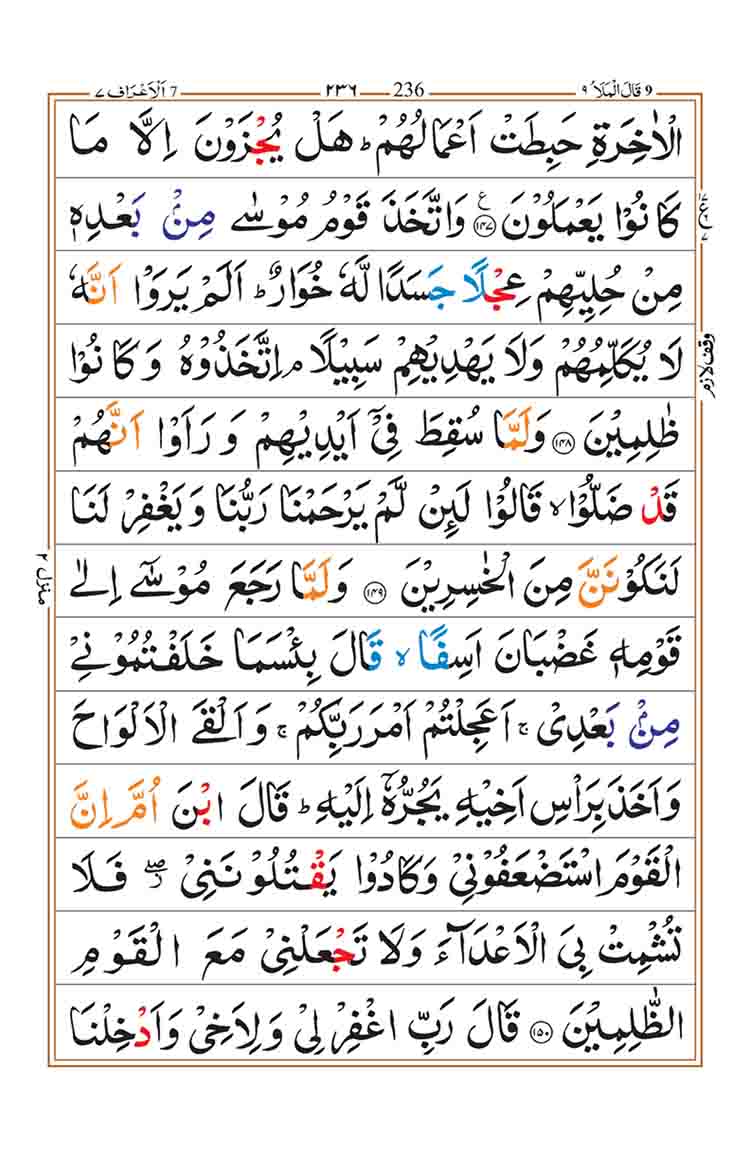 7 اَلْاَعْرَاف ٧ ٢٣٦ 236 9 قَالَ الْمَلَاُ ٩
الْاٰخِرَةِ حَبِطَتْ اَعْمَالُهُمْ ؕ هَلْ يُجْزَوْنَ اِلَّا مَا
كَانُوْا يَعْمَلُوْنَ ﴿۱۴۷﴾ وَاتَّخَذَ قَوْمُ مُوْسٰى مِنْۢ بَعْدِهٖ
مِنْ حُلِيِّهِمْ عِجْلًا جَسَدًا لَّهٗ خُوَارٌ ؕ اَلَمْ يَرَوْا اَنَّهٗ
لَا يُكَلِّمُهُمْ وَلَا يَهْدِيْهِمْ سَبِيْلًا ۘ اِتَّخَذُوْهُ وَكَانُوْا
ظٰلِمِيْنَ ﴿۱۴۸﴾ وَلَمَّا سُقِطَ فِىْۤ اَيْدِيْهِمْ وَرَاَوْا اَنَّهُمْ
قَدْ ضَلُّوْا ۙ قَالُوْا لَئِنْ لَّمْ يَرْحَمْنَا رَبُّنَا وَيَغْفِرْ لَنَا
لَنَكُوْنَنَّ مِنَ الْخٰسِرِيْنَ ﴿۱۴۹﴾ وَلَمَّا رَجَعَ مُوْسٰۤى اِلٰى
قَوْمِهٖ غَضْبَانَ اَسِفًا ۙ قَالَ بِئْسَمَا خَلَفْتُمُوْنِىْ
مِنْۢ بَعْدِىْ ۚ اَعَجِلْتُمْ اَمْرَ رَبِّكُمْ ۚ وَاَلْقَى الْاَلْوَاحَ
وَاَخَذَ بِرَاْسِ اَخِيْهِ يَجُرُّهٗۤ اِلَيْهِ ؕ قَالَ ابْنَ اُمَّ اِنَّ
الْقَوْمَ اسْتَضْعَفُوْنِىْ وَكَادُوْا يَقْتُلُوْنَنِىْ ۖ فَلَا
تُشْمِتْ بِىَ الْاَعْدَآءَ وَلَا تَجْعَلْنِىْ مَعَ الْقَوْمِ
الظّٰلِمِيْنَ ﴿۱۵۰﴾ قَالَ رَبِّ اغْفِرْ لِىْ وَلِاَخِىْ وَاَدْخِلْنَا
وقف لازم
منزل ٢